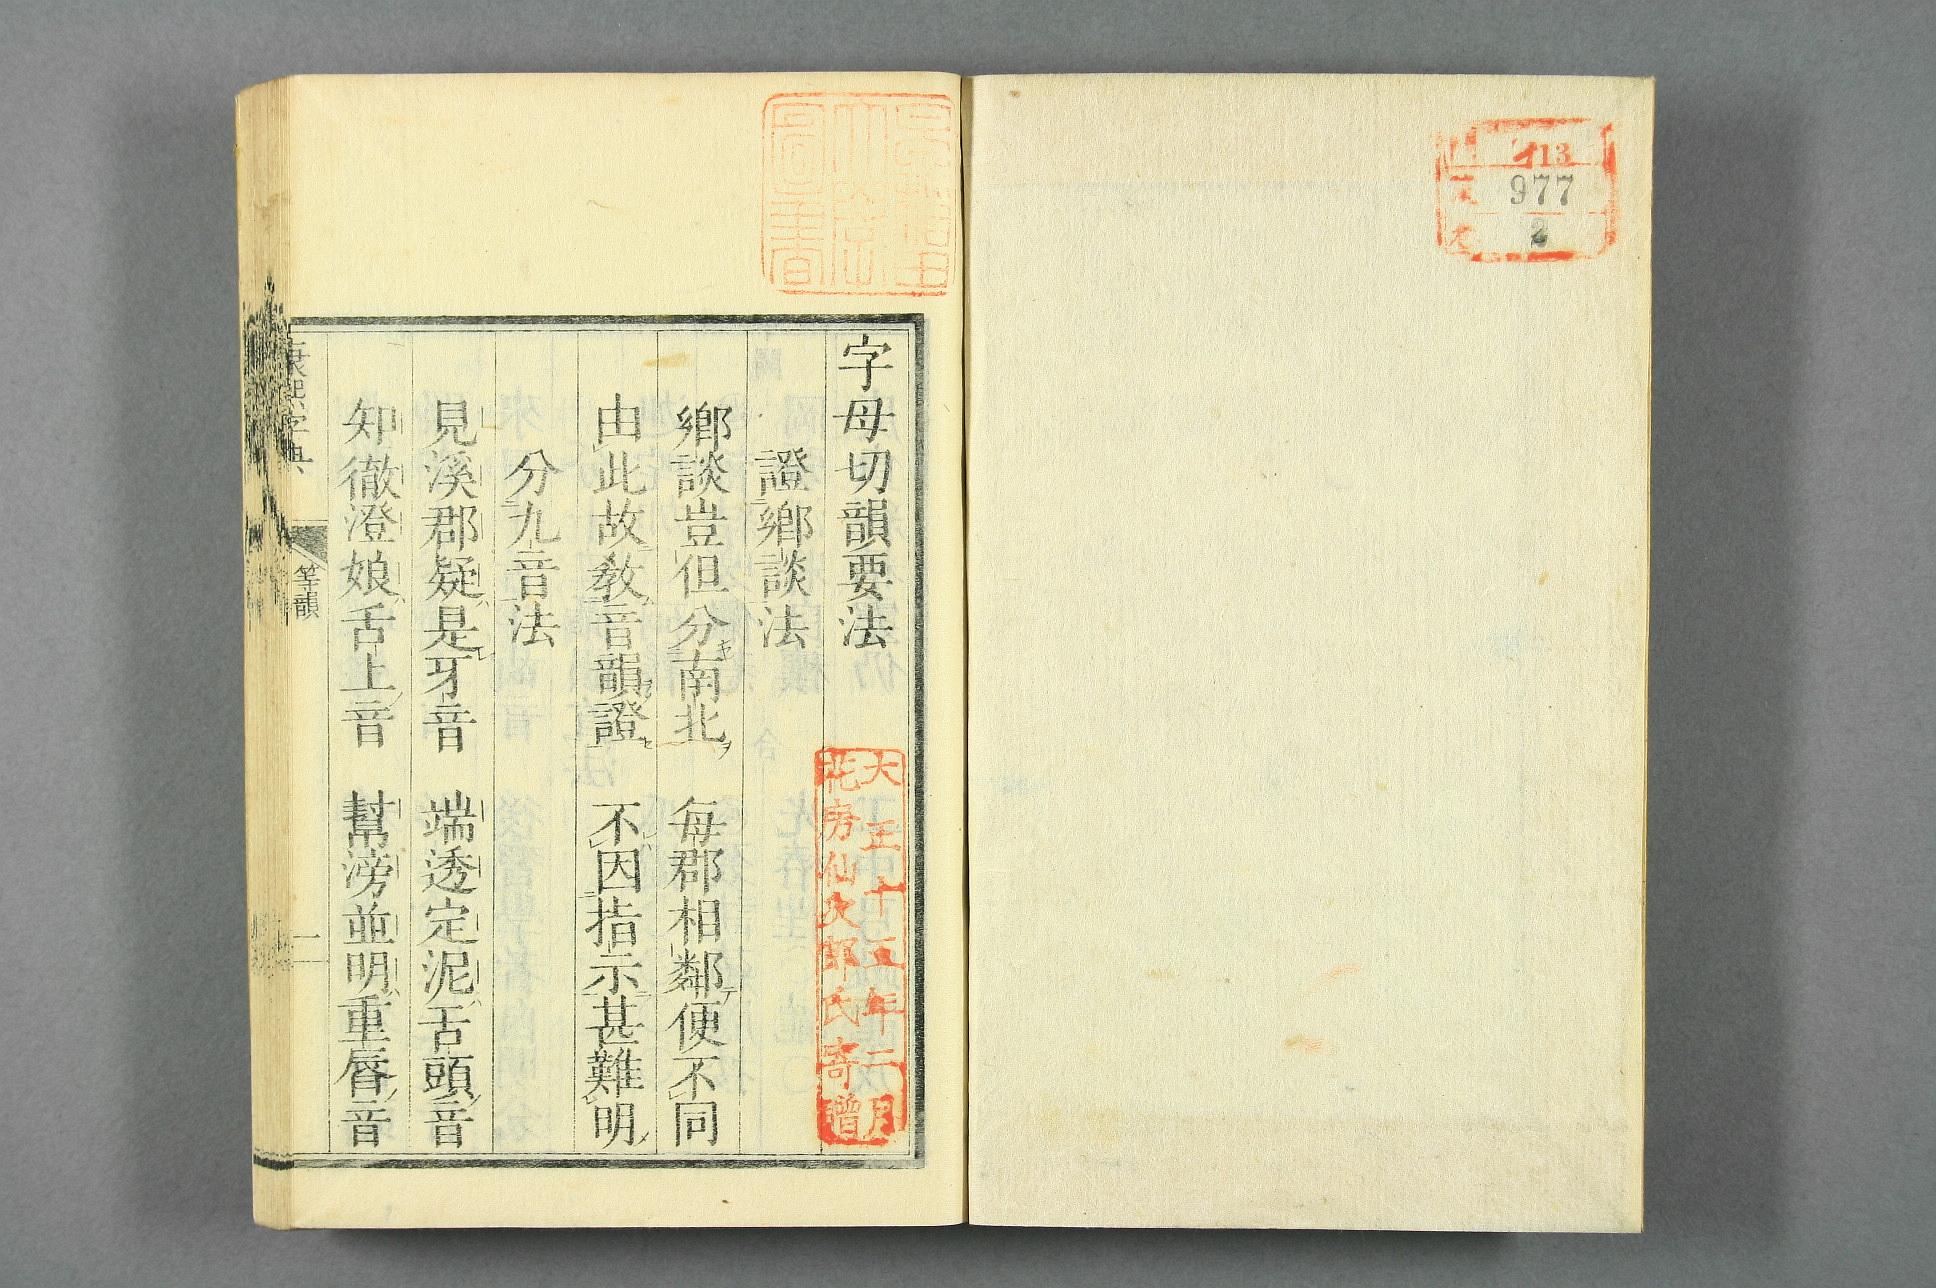 13
977
2
字母切韻要法
大正十五年二月
花房仙次郎氏寄贈
證鄉談法
鄉談豈但分南北 每郡相鄰便不同
由此故教音韻證 不因指示甚難明
分九音法
見溪郡疑是牙音 端透定泥舌頭音
知徹澄娘舌上音 幫滂並明重唇音
康熙字典 等韻 一